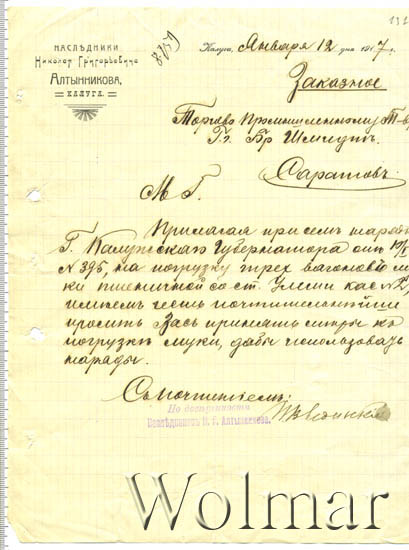 НАСЛѢДНИКИ
Николая Григорьевича
АЛТЫННИКОВА,
КАЛУГА.
Калуга, Января 12 дня 1917 г.
Заказное
Торгово Промышленному Т-ву
Бр Шмидтъ.
Саратовъ.
М Г.
Прилагая при семъ наряды
Г. Калужскаго Губернатора отъ
№ 395, на погрузку трех вагоновъ
ки пшеничной со ст.
имѣемъ честь почтительнѣйше
просить Васъ принять мѣры къ
погрузкѣ муки, дабы использовать
наряды.
Съ почтеніемъ:
По довѣренности
Наслѣдниковъ Н. Г. Алтынникова.
Wolmar